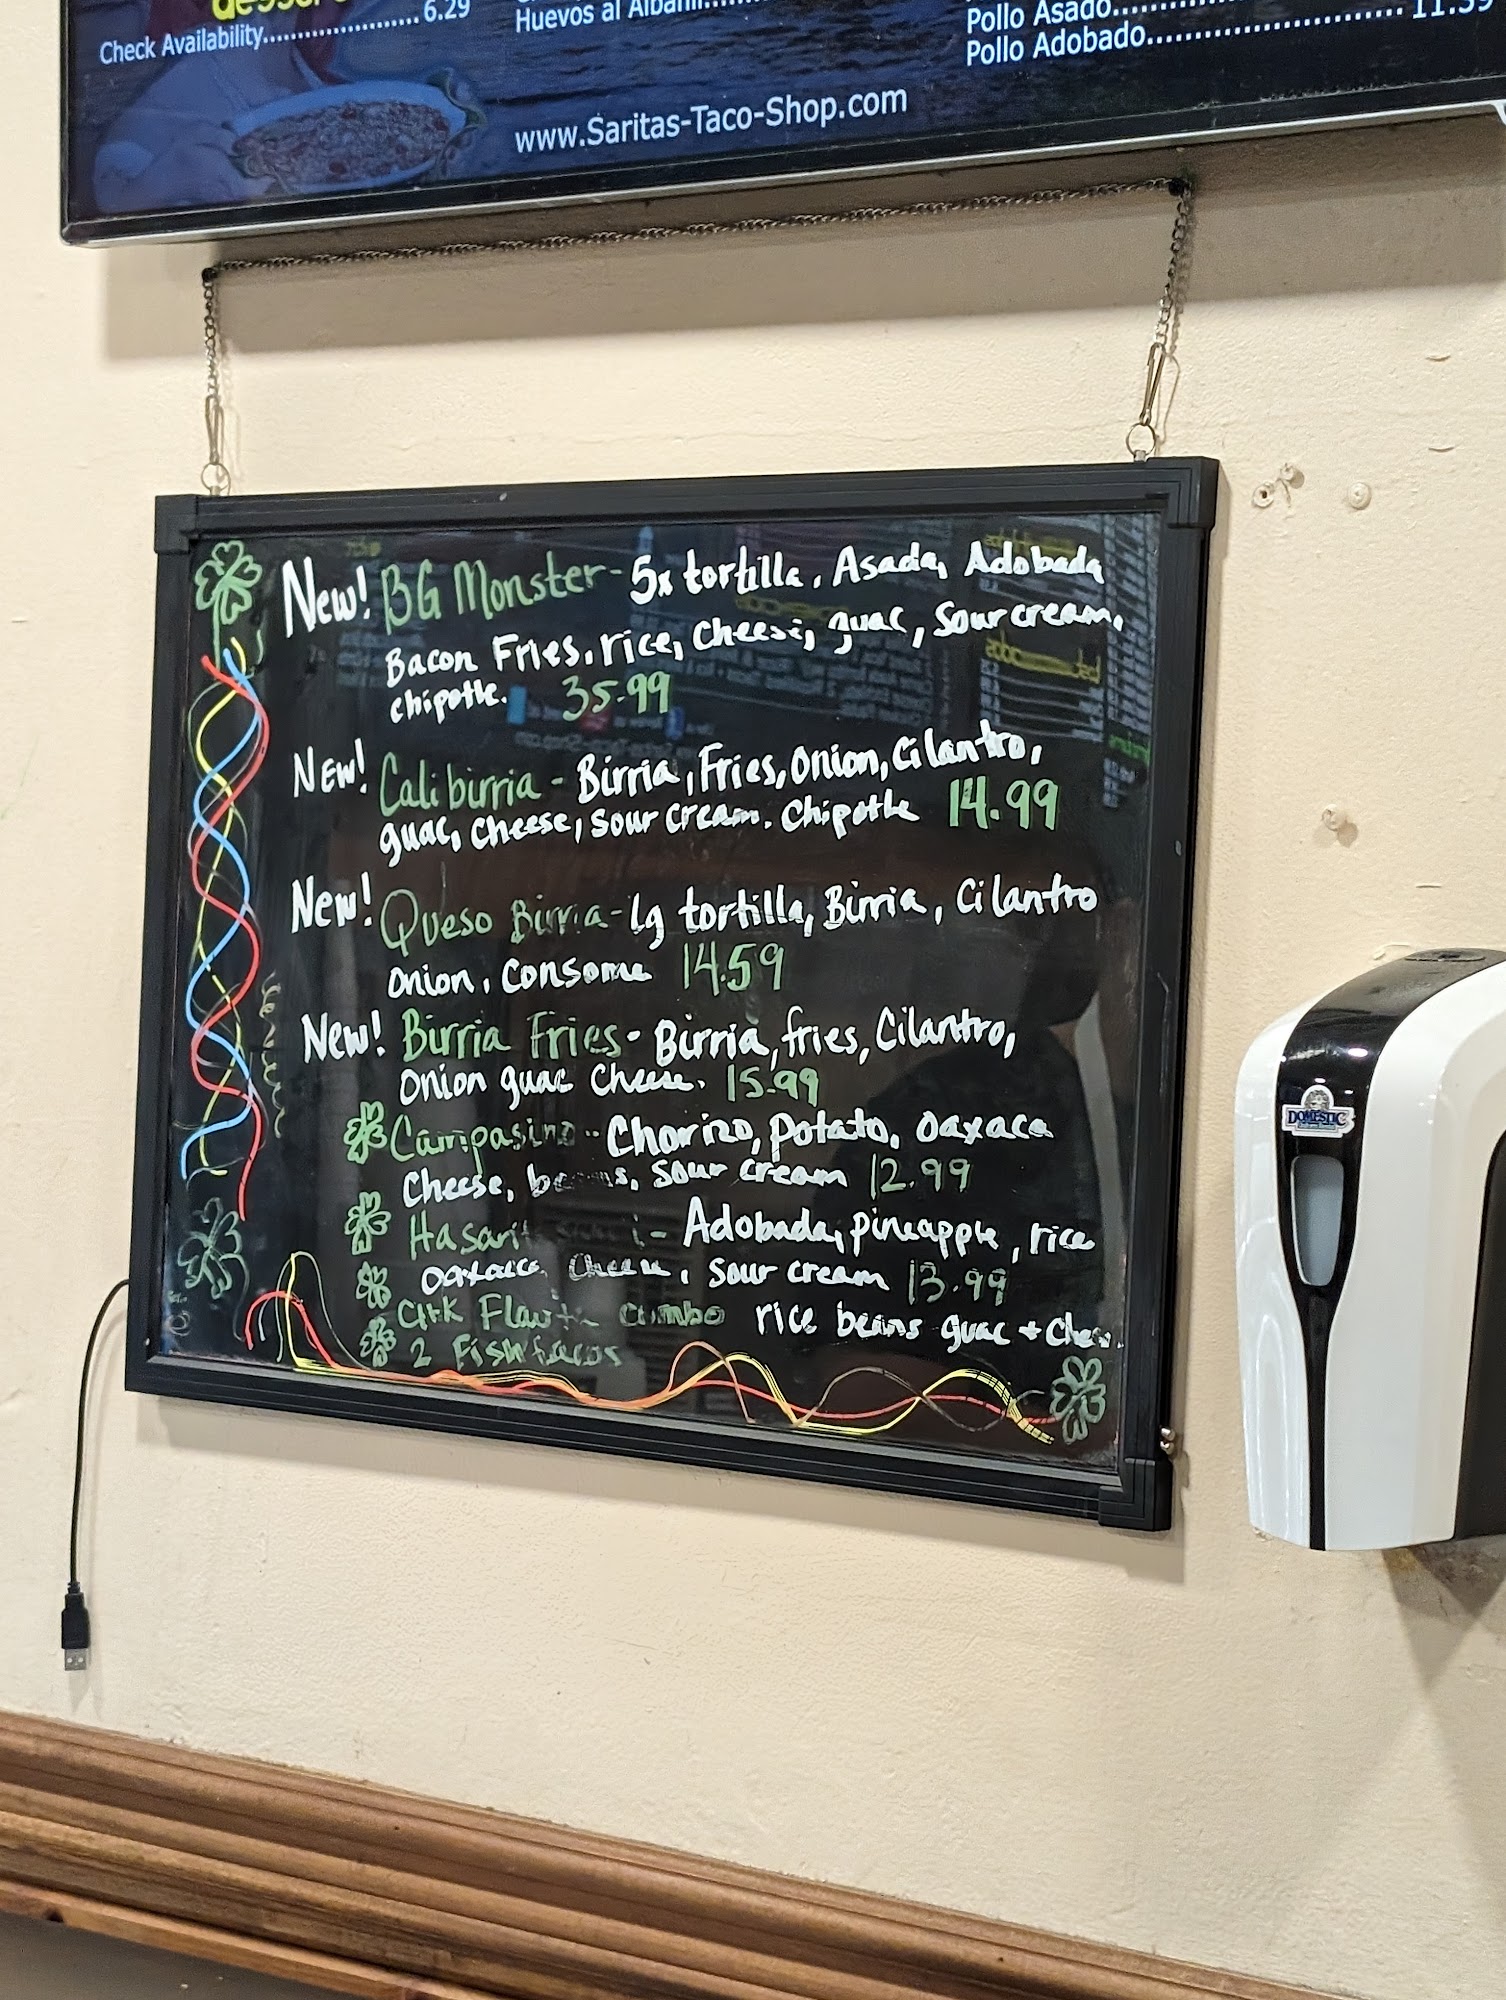 Check Availability.................... 6.29
Huevos al Albañil
Pollo Asado
Pollo Adobado
11.59
www.Saritas-Taco-Shop.com
New! BG Monster - 5x tortilla, Asada, Adobada
Bacon Fries, rice, cheese, guac, sour cream,
chipotle. 35.99
New! Cali birria - Birria, Fries, Onion, Cilantro,
guac, cheese, sour cream. Chipotle 14.99
New! Queso Birria - lg tortilla, Birria, Cilantro
onion, consome 14.59
New! Birria Fries - Birria, fries, Cilantro,
Onion guac Cheese. 15.99
Campasino - Chorizo, potato, oaxaca
Cheese, beans, sour cream 12.99
Adobada, pineapple, rice
oaxaca cheese, sour cream 13.99
combo rice beans guac + Chee
2 Fish tacos
DOMESTIC